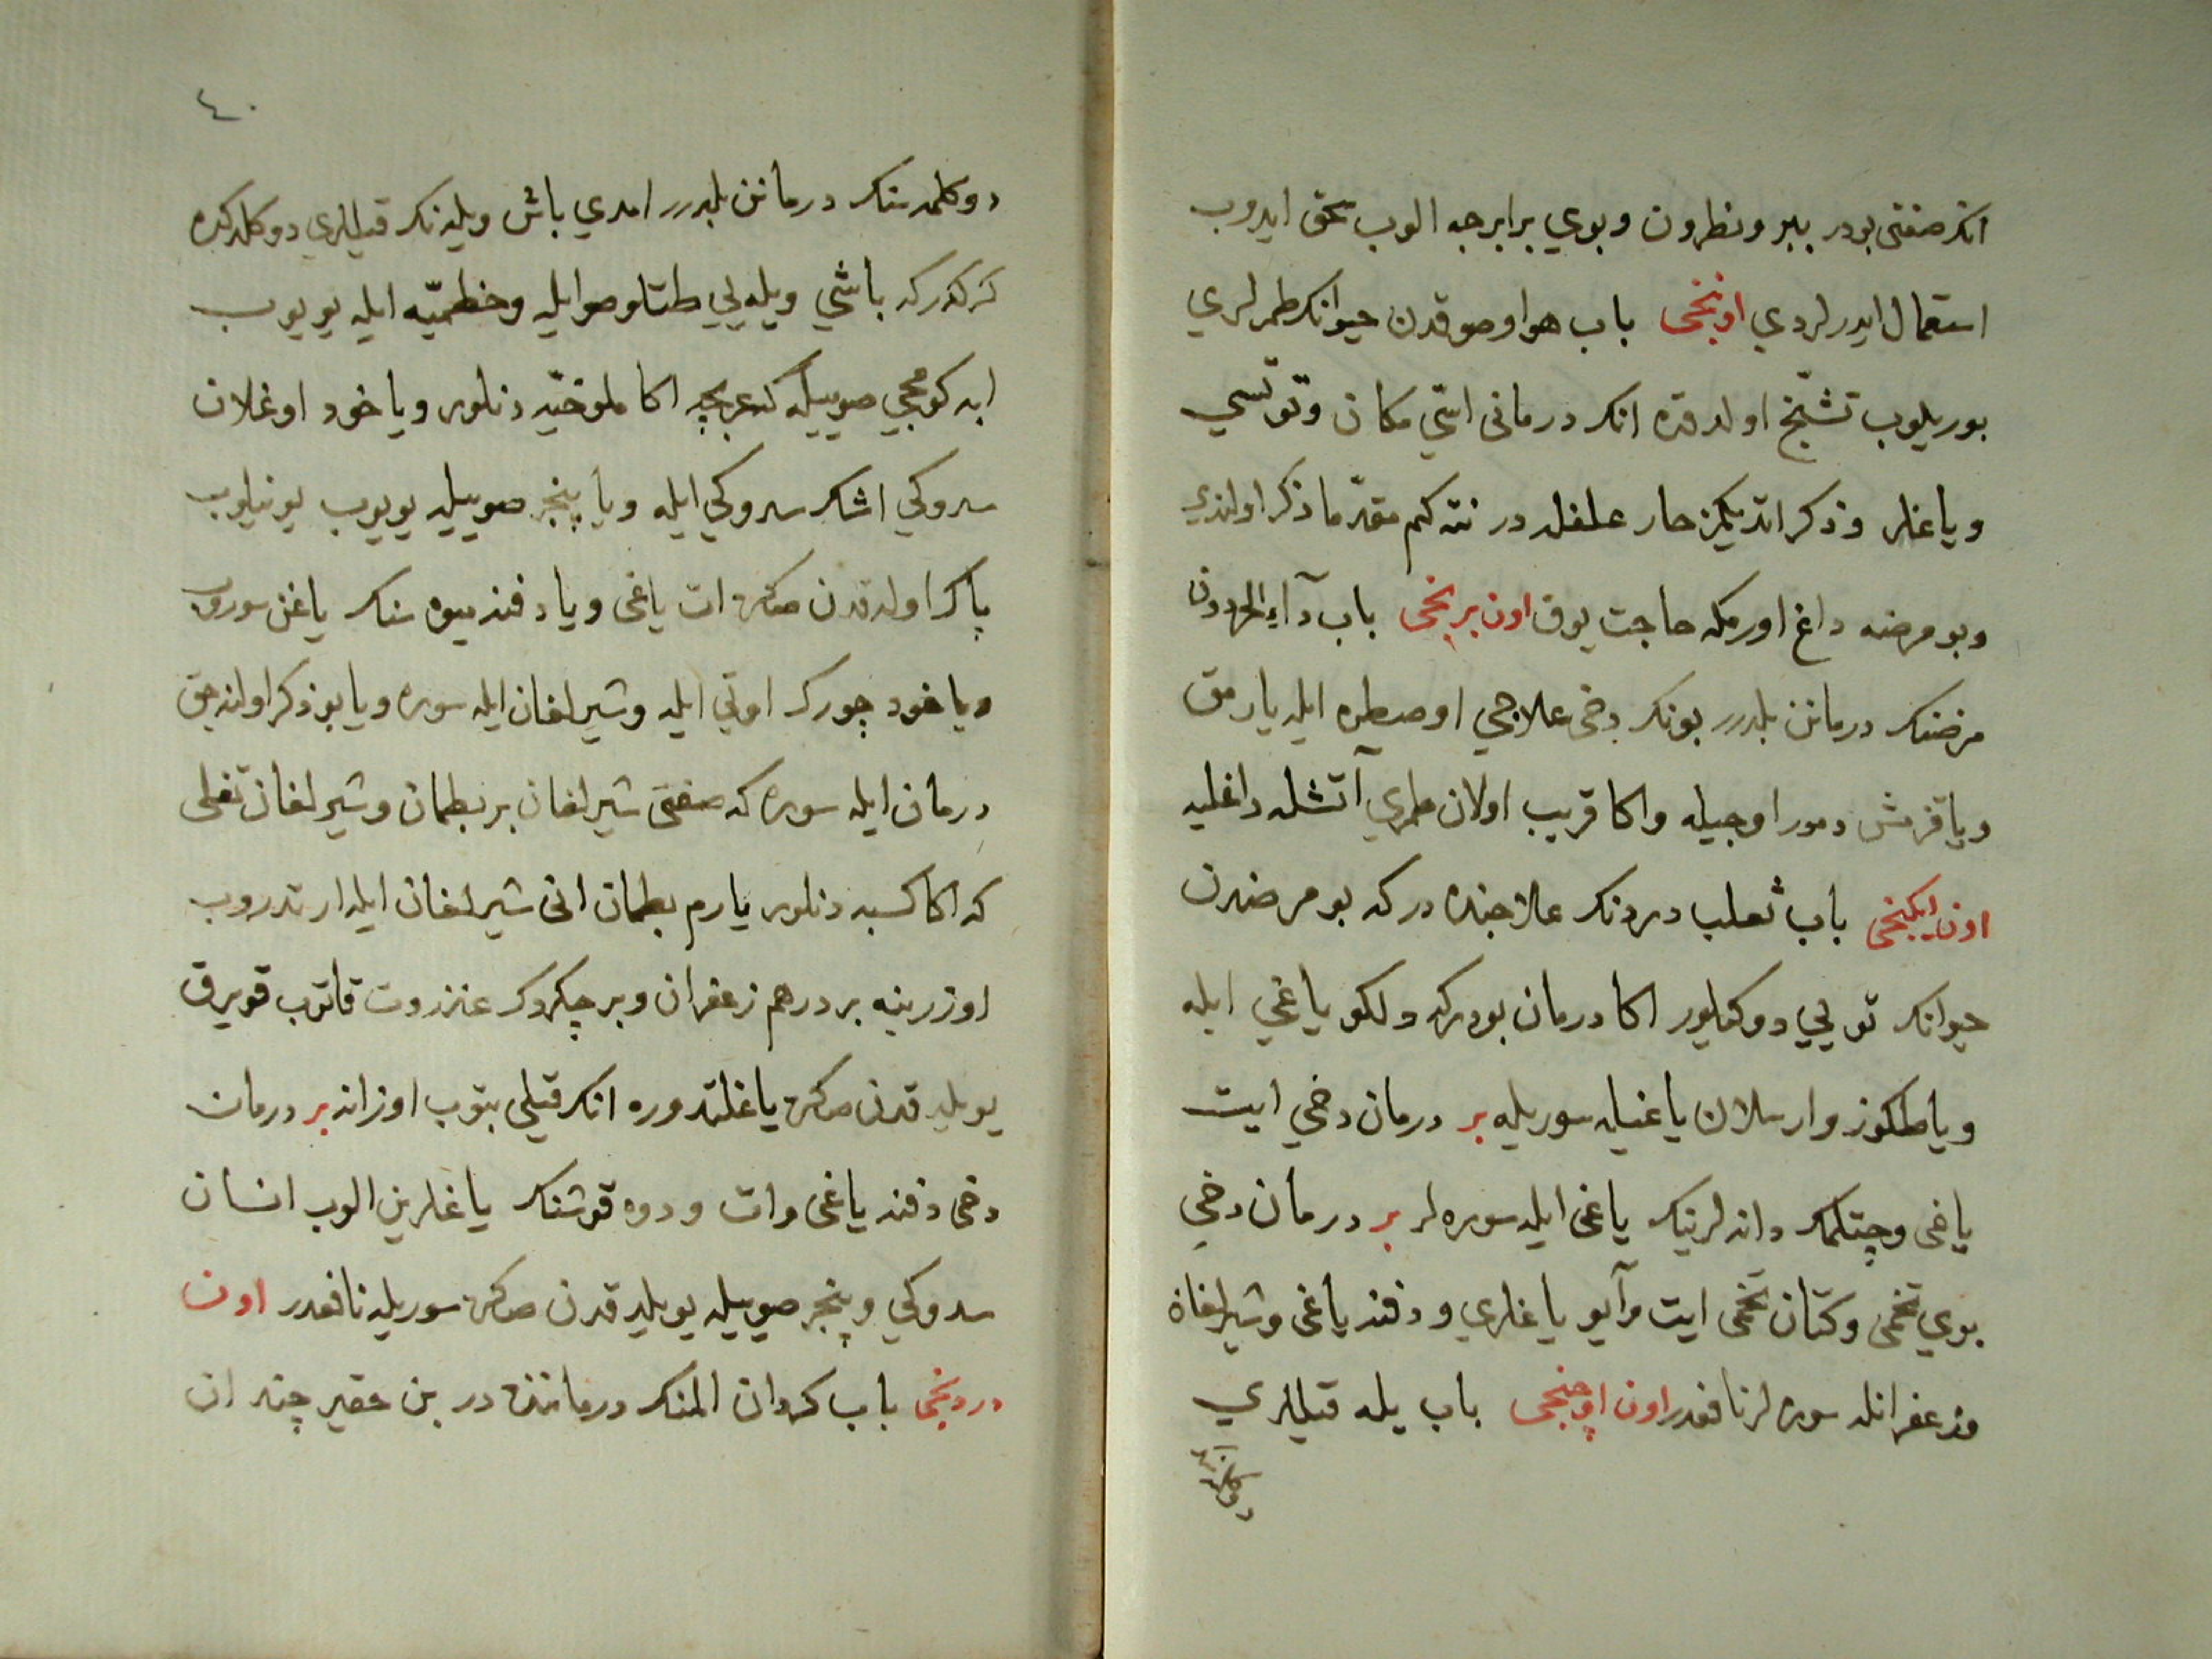 انك صفتی بودر ببر ونطرون وبوي برابرجه الوب سحق ايدوب
استعمال ايدرلردي اونجی باب هوا وصوقدن حيوانك طمرلري
بوريلوب تشنّج اولدقده انك درمانی اسّي مكان وتوتسي
وياغلر وذكر اتديكمز حار علفلدر نته كم مقدّما ذكر اولندي
وبو مرضه داغ اورمكه حاجت يوق اون برنجی باب دآء
مرضنك درمانن بلدرر بونك دخی علاجي اوصطره ايله يارمق
ويا قزمش دمور اوجيله واكا قريب اولان طمري آتشله داغليه
اون ايكنجی باب ثعلب دردنك علاجنده در كه بو مرضدن
حيوانك توبي دوكيلور اكا درمان بودركه دلكو ياغي ايله
ويا طكوز وارسلان ياغيله سوريله بر درمان دخي ايت
ياغی وچتلمك دانه لرينك ياغی ايله سوره لر بر درمان دخي
بوي تخمی وكتان تخمی ايت وآيو ياغلري ودفنه ياغی وشيرلغان
وزعفرانله سوره لر نافعدر اون اوچنجی باب يله قيللري
دوكلمه سنك درمانن بلدرر امدي باش ويله نك قيللري دوكلدكده
كركدركه باشي ويله يي طتلو صو ايله وخطميّه ايله يويوب
ابه كومجي صوييله كه عربجه اكا ملوخيّه دنلور وياخود اوغلان
سدوكي اشك سدوكي ايله ويا پنجر صوييله يويوب يونيلوب
پاك اولدقدن صكره ات ياغی ويا دفنه ميوه سنك ياغن سوروب
وياخود چورك اوتي ايله وشيرلغان ايله سوره ويا بو ذكر اولنه جق
درمان ايله سوره كه صفتی شيرلغان بر بطمان وشيرلغان تفلی
كه اكا كسبه دنلور يارم بطمان انی شيرلغان ايله ارتدروب
اوزرينه بر درهم زعفران وبر چكردك عنزروت قاتوب قويرق
يويلدقدن صكره ياغلتدوره انك قيلی بتوب اوزانه بر درمان
دخی دفنه ياغی وات ودوه قوشنك ياغلرين الوب انسان
سدوكي وپنجر صوييله يويلدقدن صكره سوريله نافعدر اون
دردنجی باب كروان المنك درمانننده در بن حقير چند ان